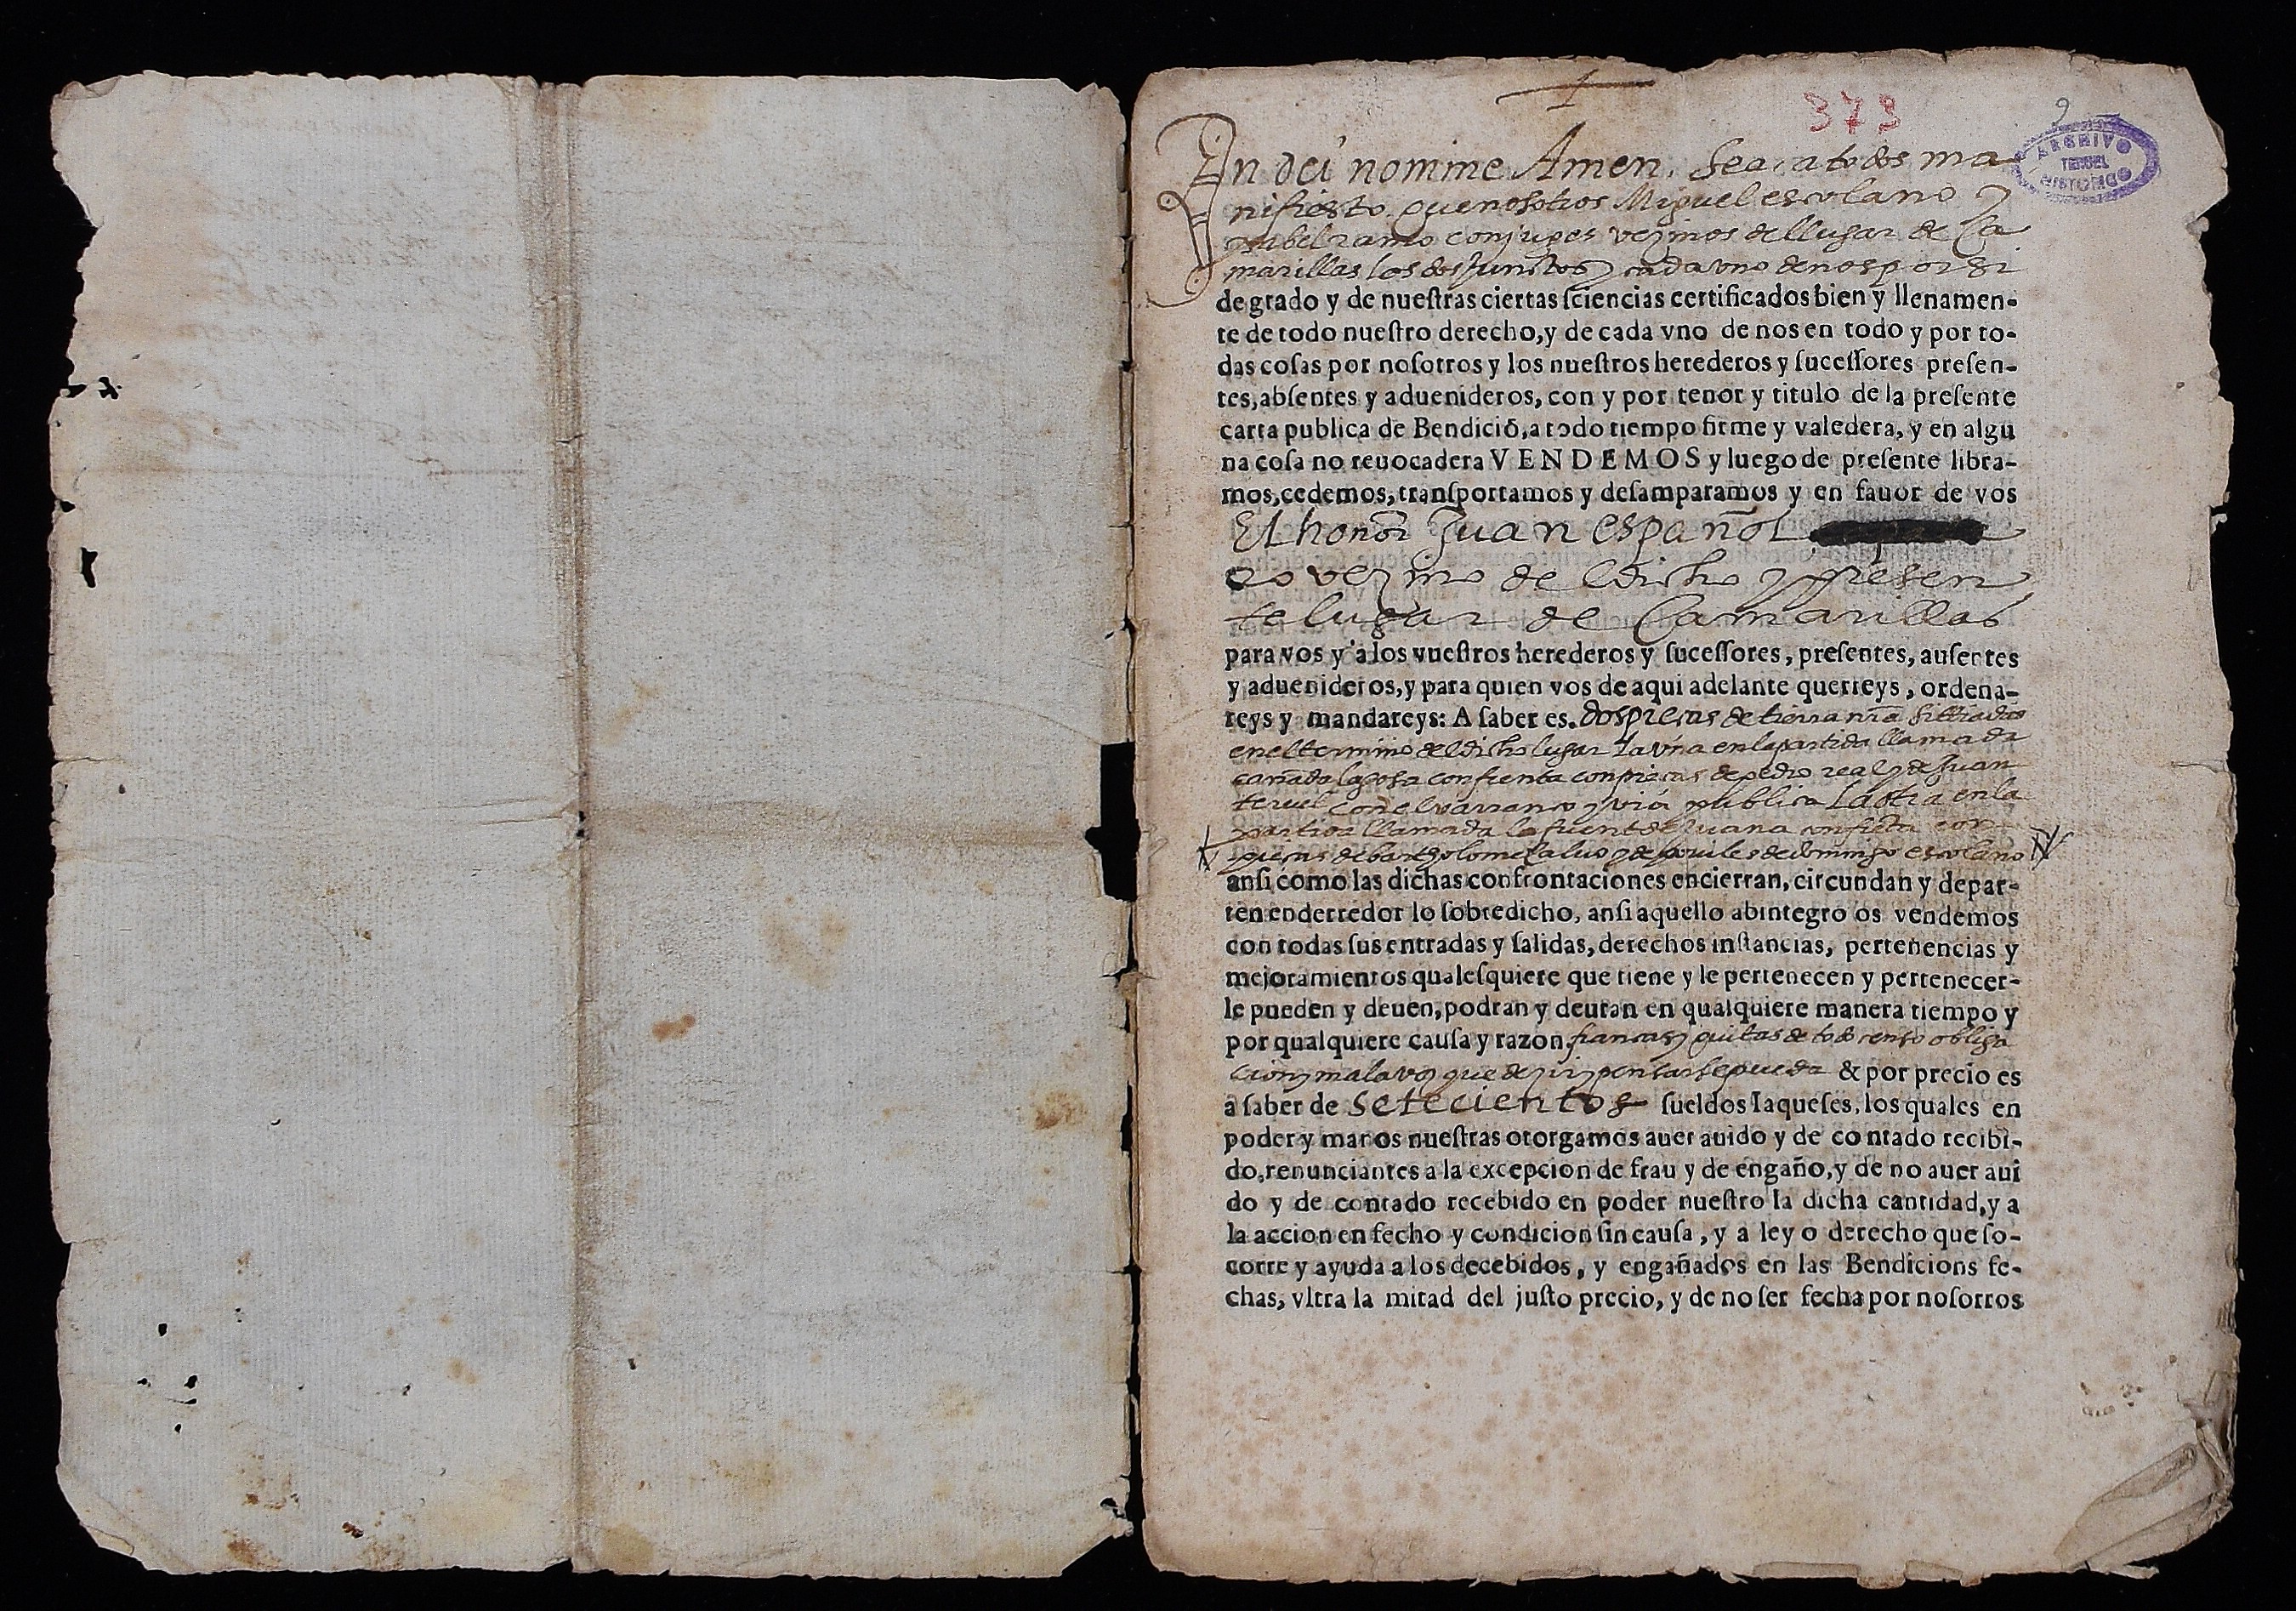 373
9
ARCHIVO
TERUEL
HISTORICO
In dei nomine Amen. Sea a todos ma
nifiesto que nosotros Miguel escolano y
isabel ramo conjuges vezinos del lugar de Ca
marillas los dos juntos y cada vno de nos por si
de grado y de nueſtras ciertas ſciencias certificados bien y llenamen-
te de todo nueſtro derecho, y de cada vno de nos en todo y por to-
das coſas por noſotros y los nueſtros herederos y ſuceſſores preſen-
tes, abſentes y aduenideros, con y por tenor y titulo de la preſente
carta publica de Bendició, a todo tiempo firme y valedera, y en algu
na coſa no reuocadera VENDEMOS y luego de preſente libra-
mos, cedemos, tranſportamos y deſamparamos y en fauor de vos
El honor Juan español
ro vezino de el dicho y presen
te lugar de Camarillas
para vos y a los vueſtros herederos y ſuceſſores, preſentes, auſentes
y aduenideros, y para quien vos de aqui adelante querreys, ordena-
reys y mandareys: A ſaber es. dos pieças de tierra nrã sittiadas
en el termino del dicho lugar La vna en la partida llamada
cañada la losa confrenta con pieças de pedro real y de Juan
teruel con el varranco y via publica La otra en la
partida llamada la fuente de Juana confrẽta con
pieças de bartholome caluo y de de domingo escolano
anſi como las dichas confrontaciones encierran, circundan y depar-
ten en derredor lo ſobredicho, anſi aquello abintegro os vendemos
con todas ſus entradas y ſalidas, derechos inſtancias, pertenencias y
mejoramientos qualeſquiere que tiene y le pertenecen y pertenecer-
le pueden y deuen, podran y deuran en qualquiere manera tiempo y
por qualquiere cauſa y razon, francas y quitas de todo censo obliga
cion y mala voz que dezir y pensar se pueda & por precio es
a ſaber de setecientos ſueldos Iaqueſes, los quales en
poder y manos nueſtras otorgamos auer auido y de contado recibi-
do, renunciantes a la excepcion de frau y de engaño, y de no auer aui
do y de contado recebido en poder nueſtro la dicha cantidad, y a
la accion en fecho y condicion ſin cauſa, y a ley o derecho que ſo-
corre y ayuda a los decebidos, y engañados en las Bendicions fe-
chas, vltra la mitad del juſto precio, y de no ſer fecha por noſotros